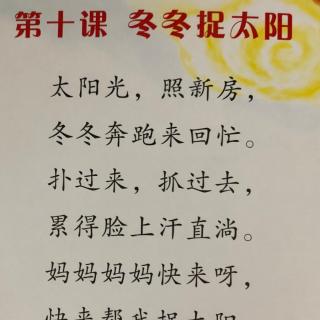 第十课 冬冬捉太阳
太阳光，照新房，
冬冬奔跑来回忙。
扑过来，抓过去，
累得脸上汗直淌。
妈妈妈妈快来呀，
快来帮我捉太阳